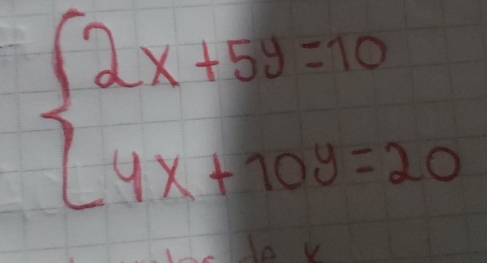 2x+5y=10
4x+10y=20
de x